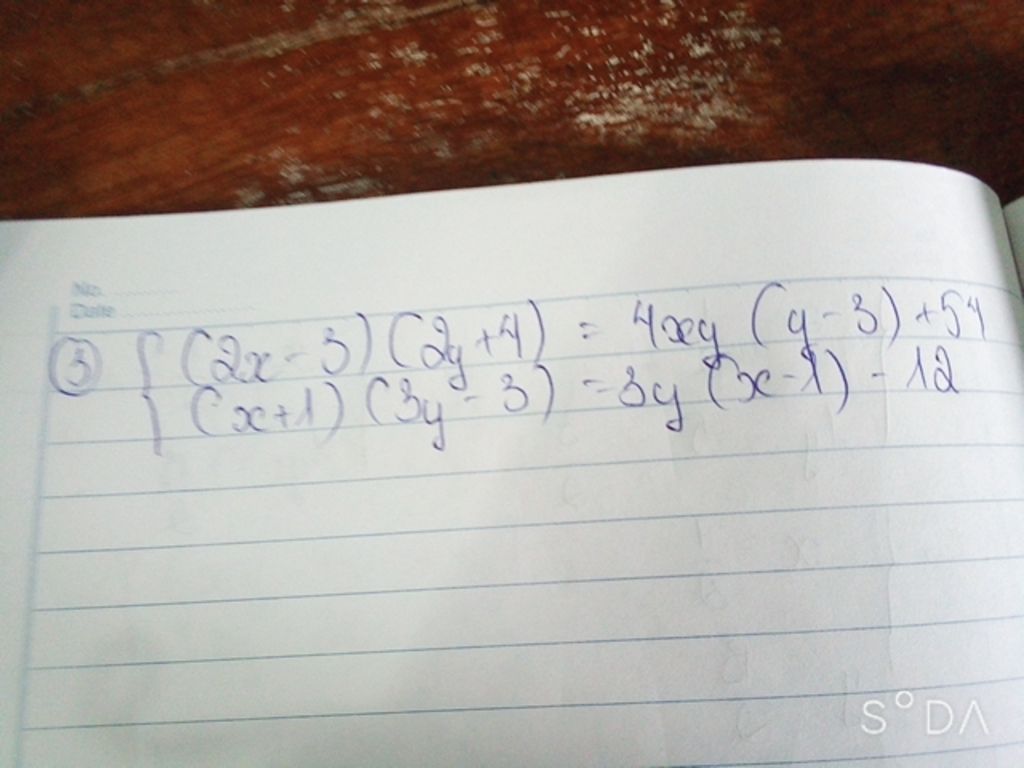 No.
Date
③ { (2x - 3) (2y + 4) = 4xy (y - 3) + 54
(x + 1) (3y - 3) = 3y (x - 1) - 12
SODA